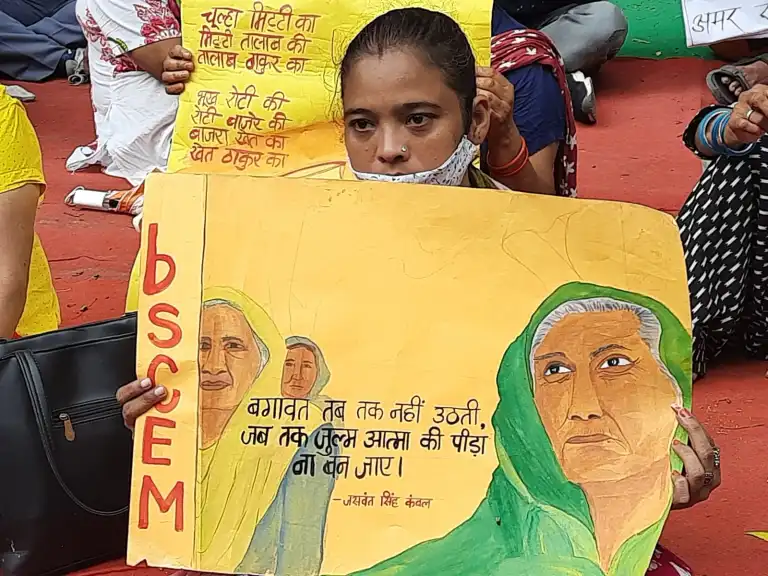 चूल्हा मिट्टी का
मिट्टी तालाब की
तालाब ठाकुर का
भूख रोटी की
रोटी बाजरे की
बाजरा खेत का
खेत ठाकुर का
अमर
bSCEM
बगावत तब तक नहीं उठती,
जब तक जुल्म आत्मा की पीड़ा
ना बन जाए।
- जसवंत सिंह कंवल